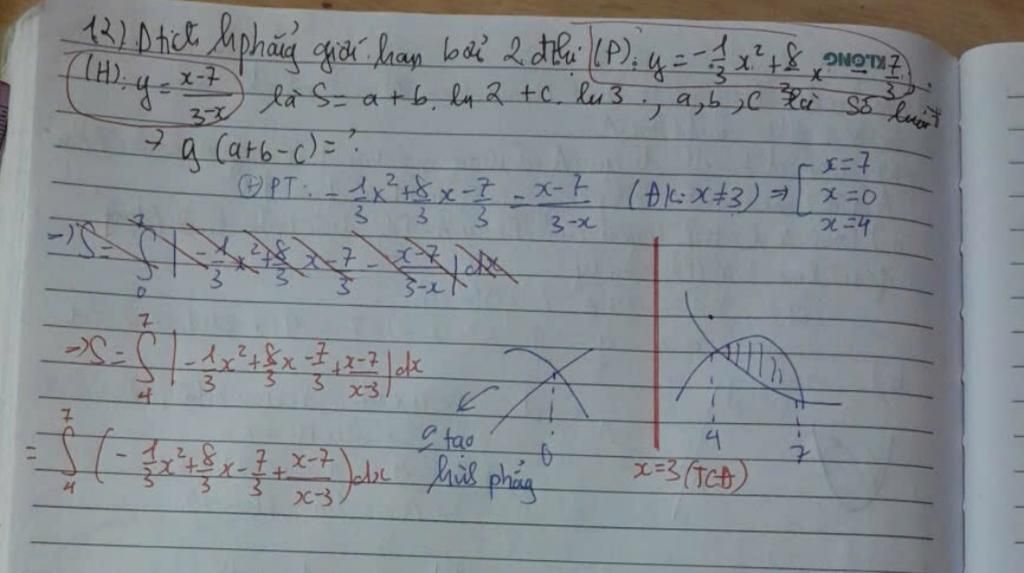 12) Dtích hphẳg giới hạn bởi 2 đthị (P): y = -1/3 x² + 8/3 x - 7/3
KLONG
(H): y = (x-7)/(3-x) là S = a + b. ln 2 + c. ln 3 ., a, b, c là số hữu tỉ
→ 9 (a+b-c) = ?
⊕ PT: -1/3 x² + 8/3 x - 7/3 = (x-7)/(3-x) (Đk: x ≠ 3) ⇒ [ x=7
x=0
x=4
⇒ S = ∫₀⁷ | -1/3 x² + 8/3 x - 7/3 - (x-7)/(3-x) | dx
⇒ S = ∫₄⁷ | -1/3 x² + 8/3 x - 7/3 + (x-7)/(x-3) | dx
= ∫₄⁷ ( -1/3 x² + 8/3 x - 7/3 + (x-7)/(x-3) ) dx
tạo
phẳg
0
4
7
x=3 (TCĐ)